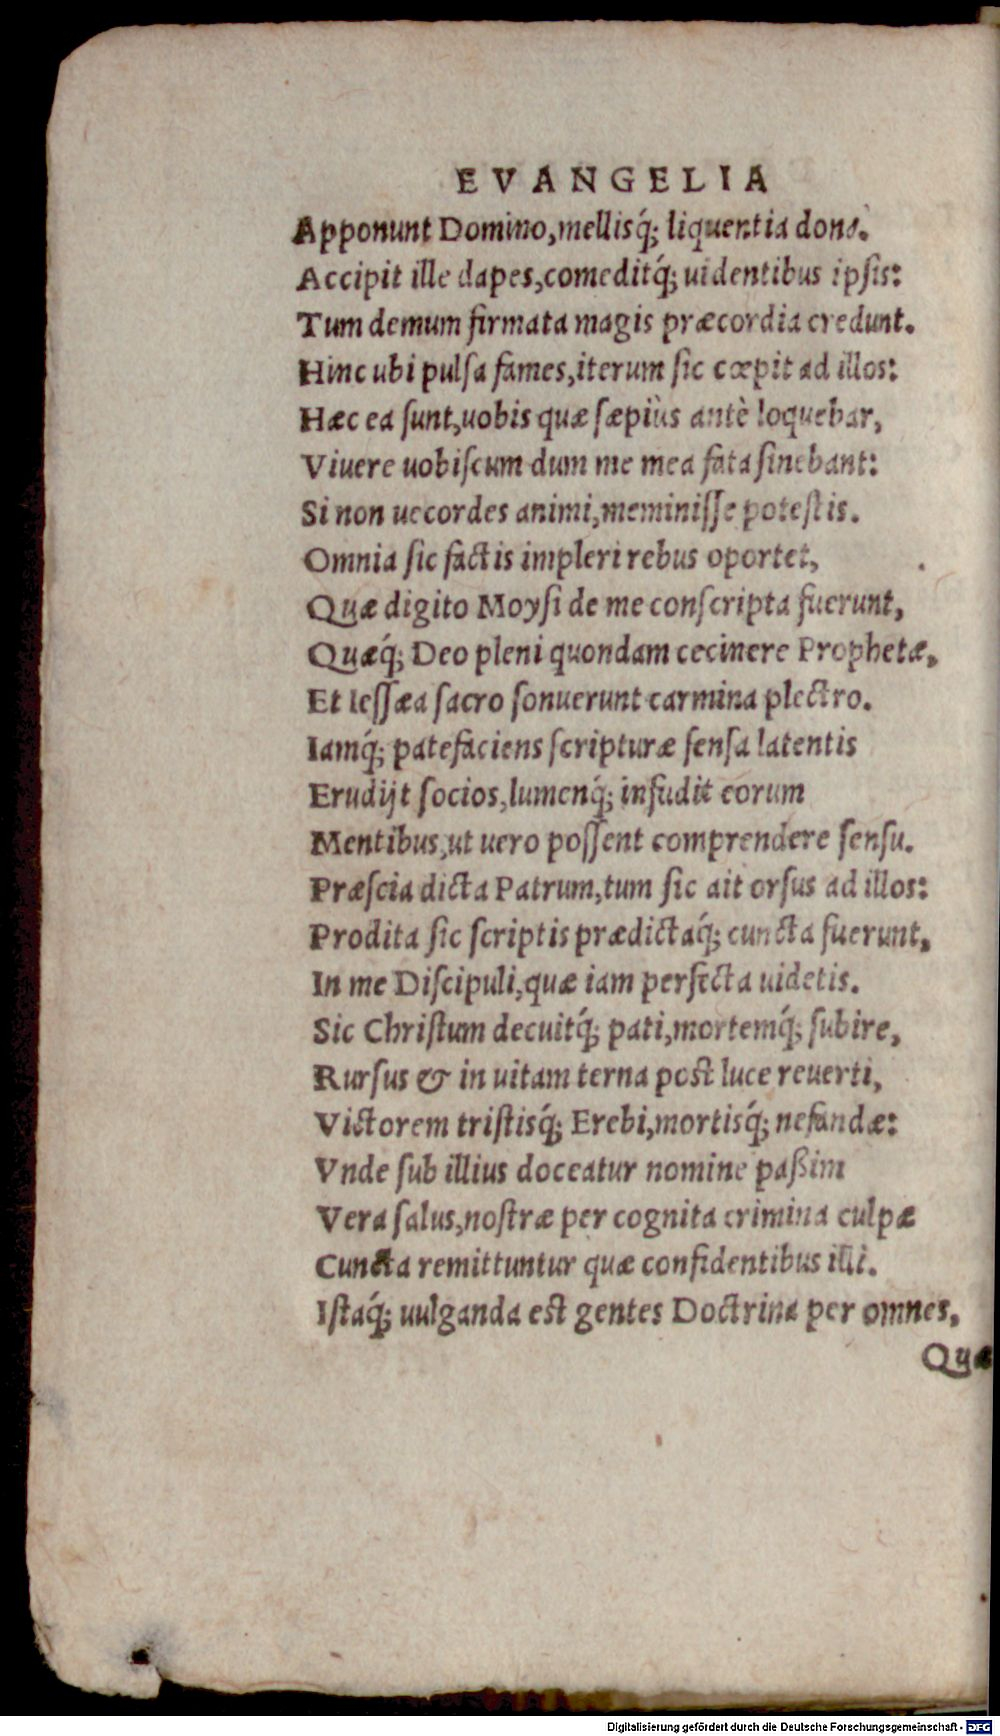 EVANGELIA
Apponunt Domino, mellisq́; liquentia dona.
Accipit ille dapes, comeditq́; uidentibus ipſis:
Tum demum firmata magis præcordia credunt.
Hinc ubi pulſa fames, iterum ſic cœpit ad illos:
Hæc ea ſunt, uobis quæ ſæpiùs antè loquebar,
Viuere uobiſcum dum me mea fata ſinebant:
Si non uecordes animi, meminiſſe poteſtis.
Omnia ſic factis impleri rebus oportet,
Quæ digito Moyſi de me conſcripta fuerunt,
Quæq́; Deo pleni quondam cecinere Prophetæ,
Et Ieſſæa ſacro ſonuerunt carmina plectro.
Iamq́; patefaciens ſcripturæ ſenſa latentis
Erudijt ſocios, lumenq́; infudit eorum
Mentibus, ut uero poſſent comprendere ſenſu.
Præſcia dicta Patrum, tum ſic ait orſus ad illos:
Prodita ſic ſcriptis prædictaq́; cuncta fuerunt,
In me Diſcipuli, quæ iam perfecta uidetis.
Sic Chriſtum decuitq́; pati, mortemq́; ſubire,
Rurſus & in uitam terna poſt luce reuerti,
Victorem triſtisq́; Erebi, mortisq́; nefandæ:
Vnde ſub illius doceatur nomine paßim
Vera ſalus, noſtræ per cognita crimina culpæ
Cuncta remittuntur quæ confidentibus illi.
Iſtaq́; uulganda eſt gentes Doctrina per omnes,
Quæ
Digitalisierung gefördert durch die Deutsche Forschungsgemeinschaft - DFG